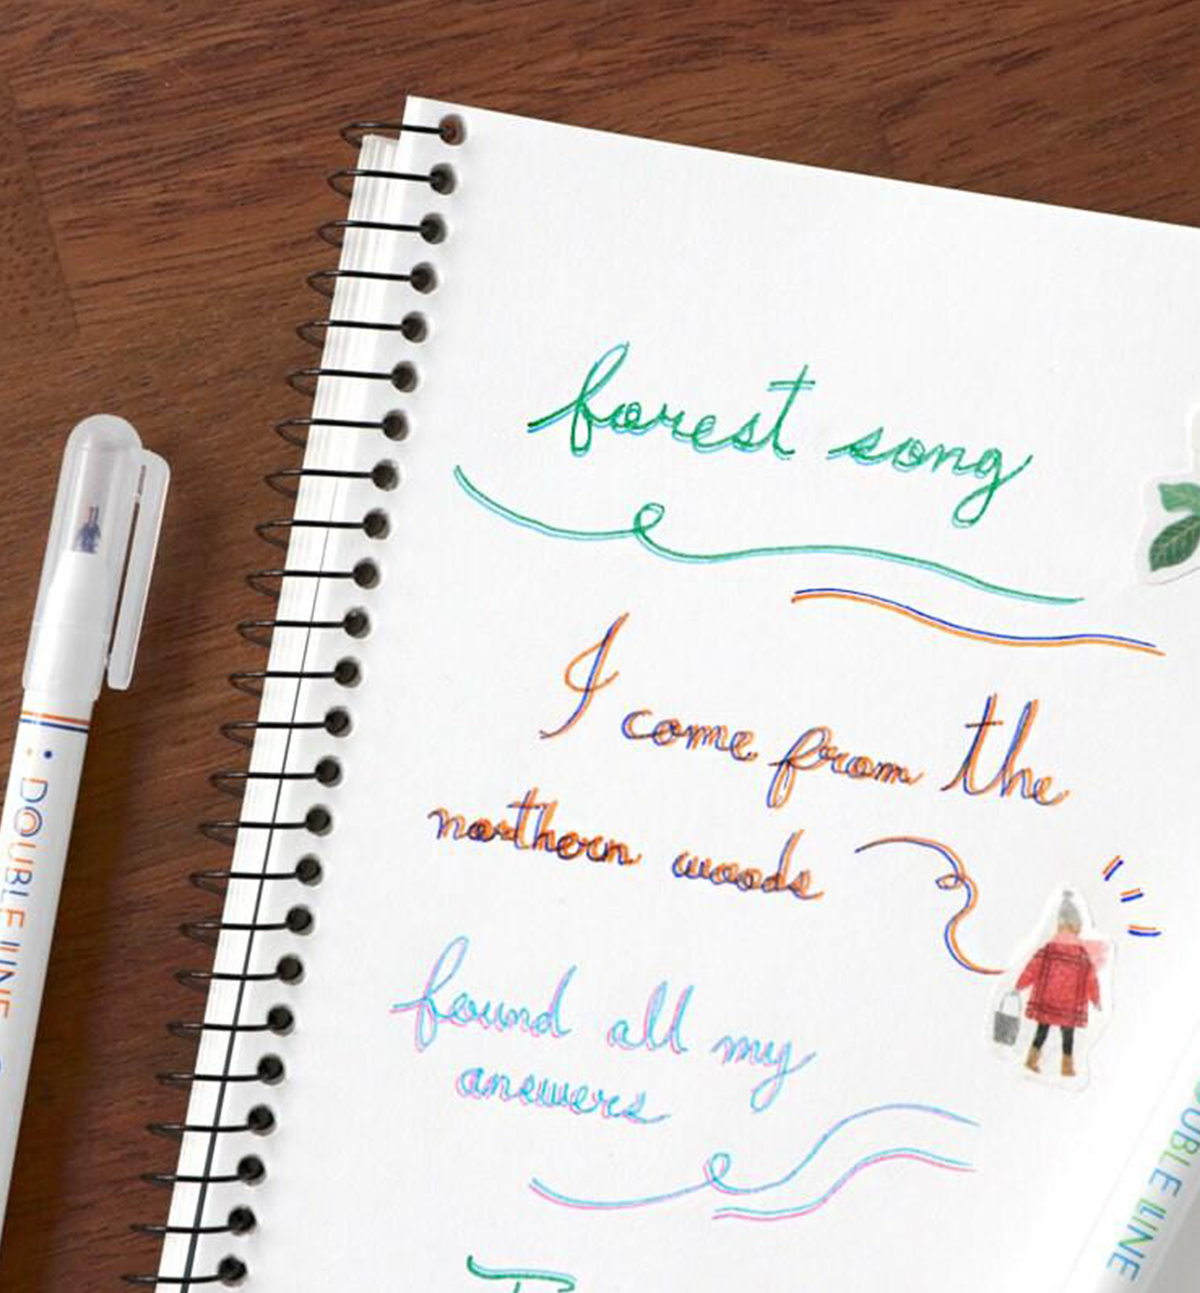 forest song
I come from the
northern woods
found all my
answers
DOUBLE LINE
DOUBLE LINE